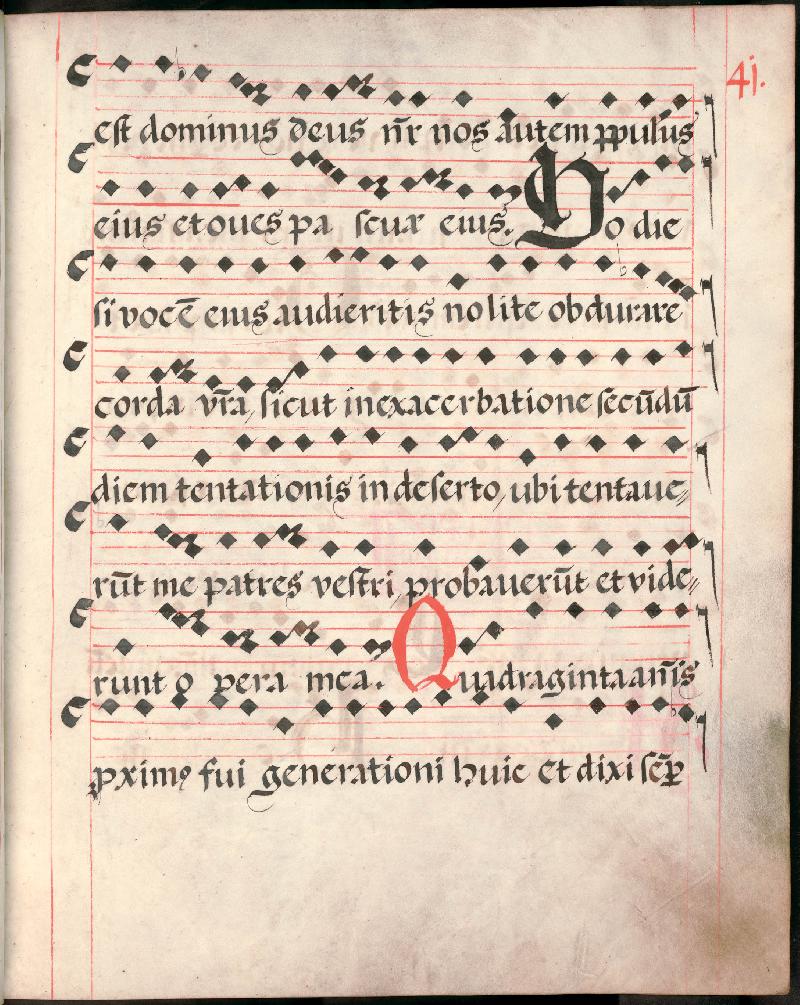 41.
est dominus deus nr̄ nos autem ꝑpulus
eius et oues pa scuæ eius. Ho die
si vocē eius audieritis nolite obdurare
corda vr̄a, sicut in exacerbatione secūdū
diem tentationis in deserto, ubi tentaue〃
rūt me patres vestri, probauerūt et vide〃
runt o pera mea. Quadraginta an̄is
ꝓximꝯ fui generationi huic et dixi sēꝑ